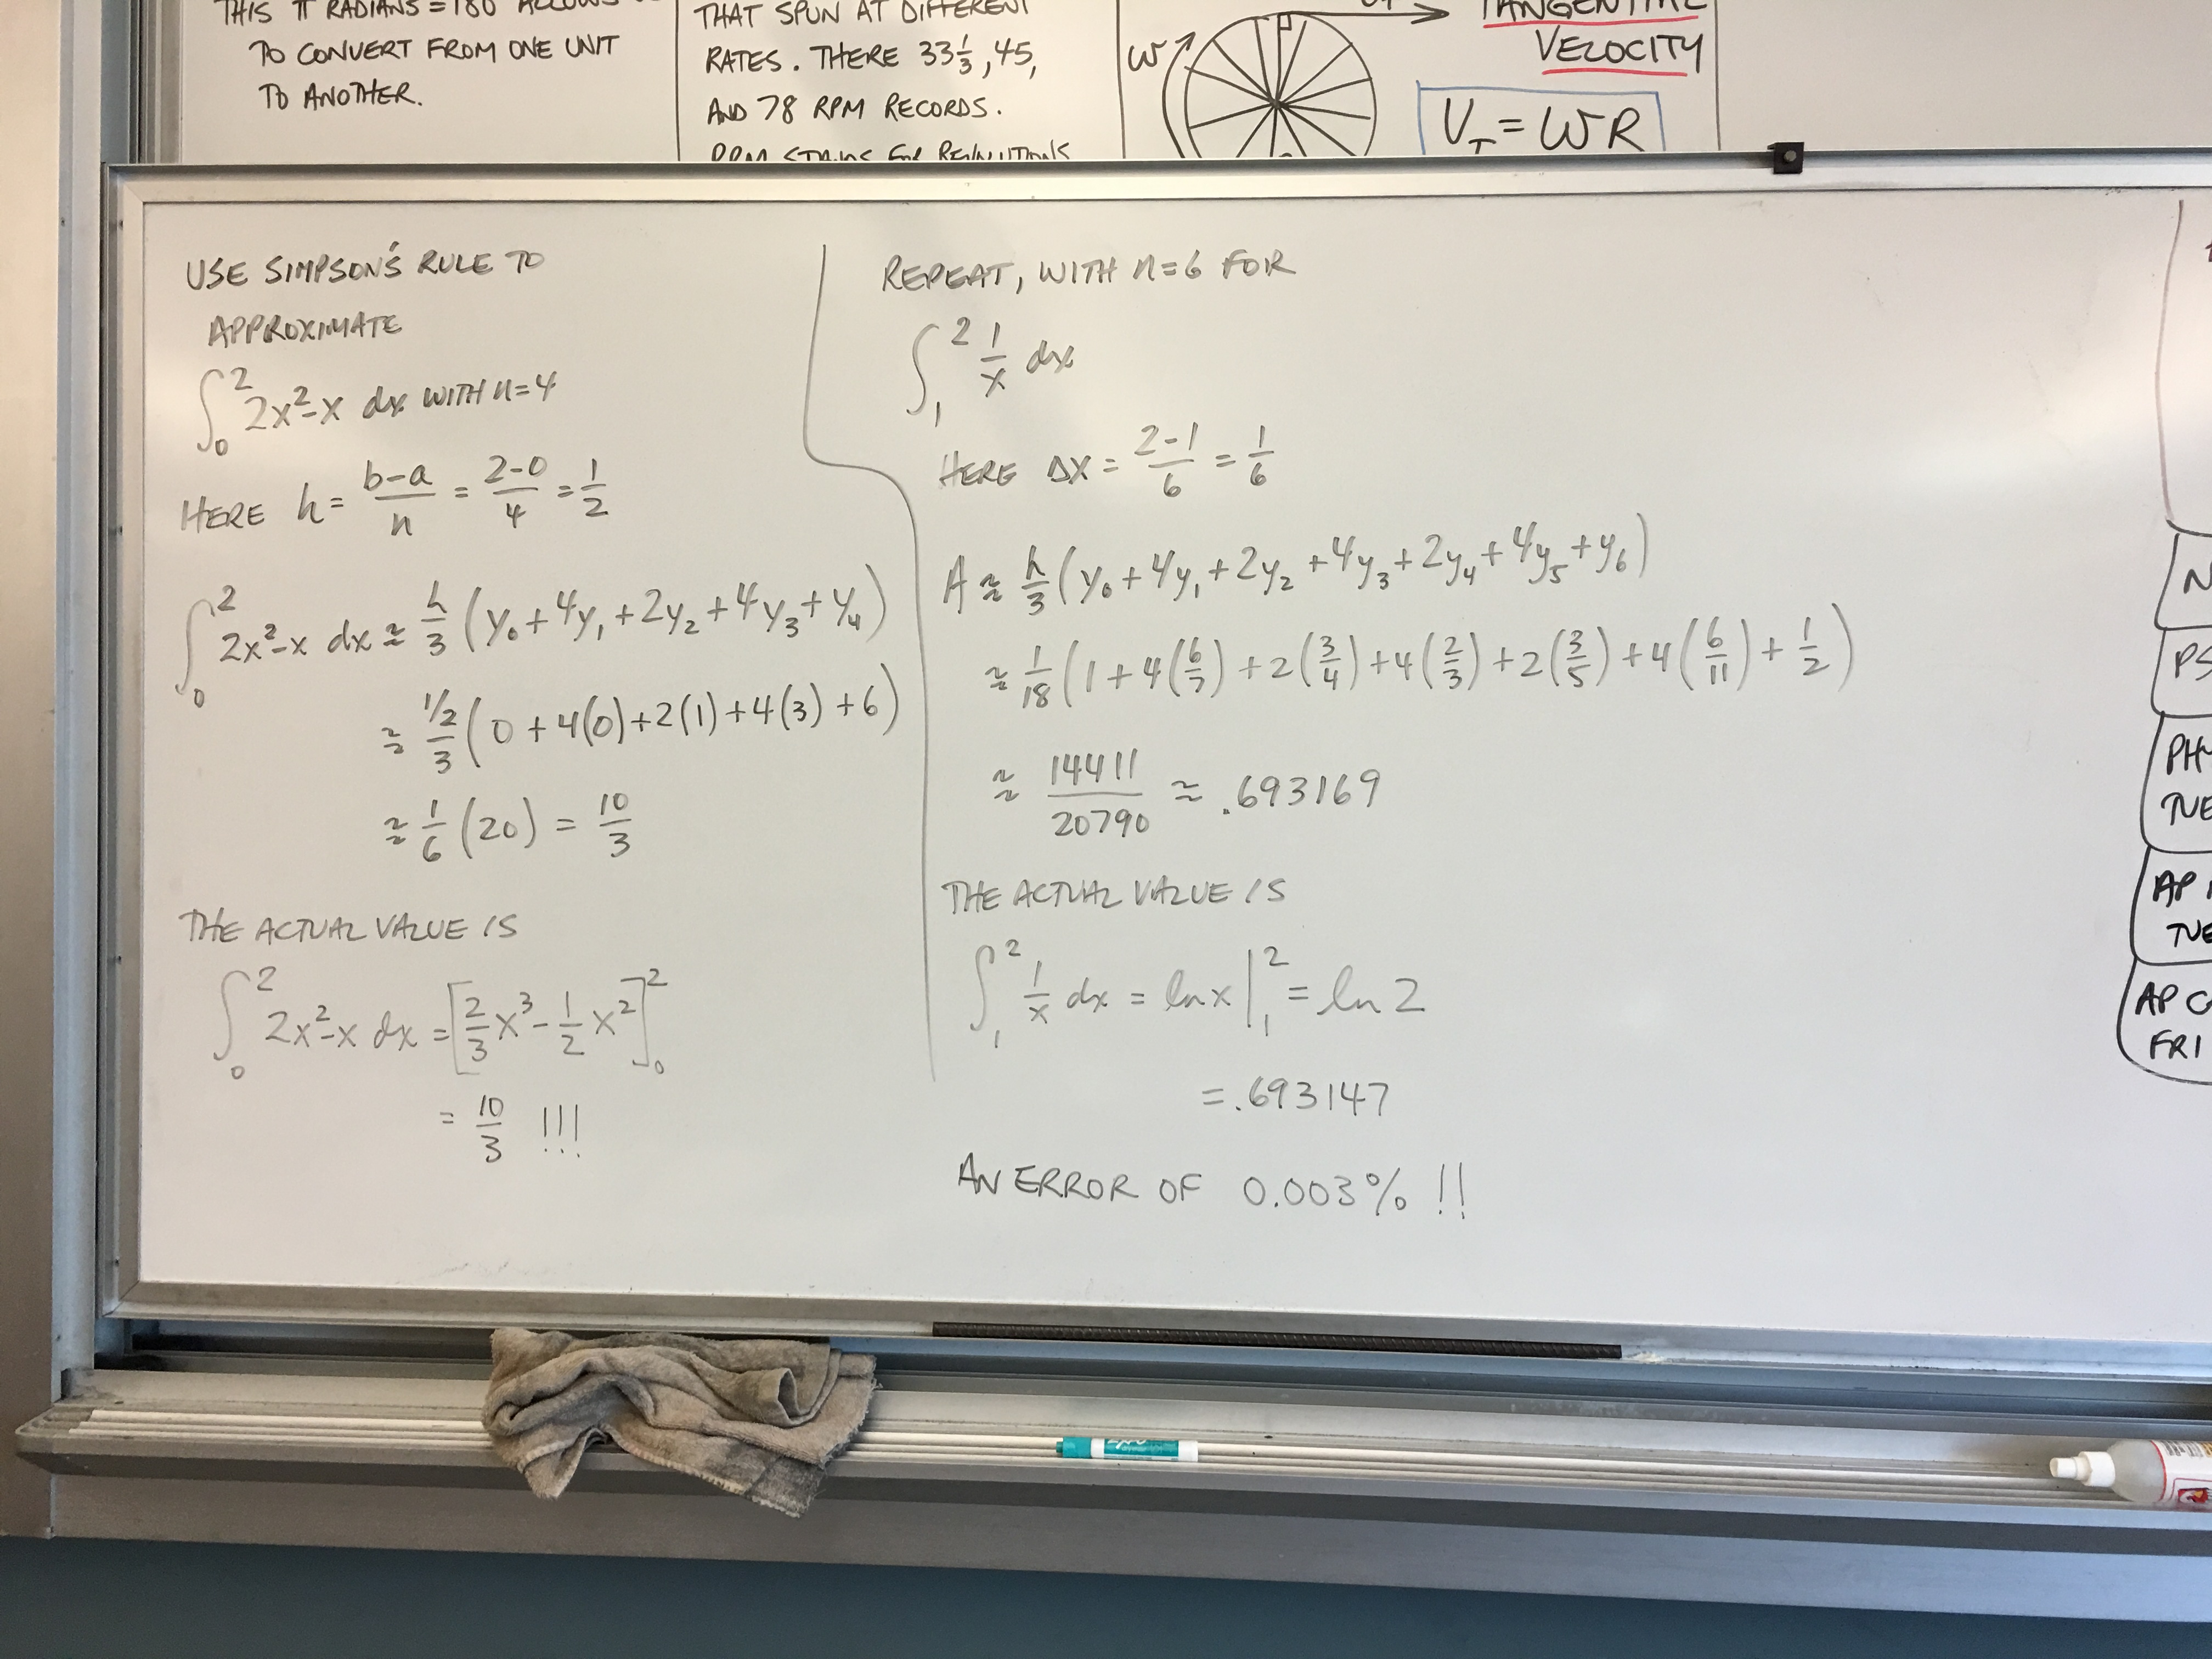 THIS π RADIANS = 180 ALLOWS
TO CONVERT FROM ONE UNIT
TO ANOTHER.
THAT SPUN AT DIFFERENT
RATES. THERE 33 1/3, 45,
AND 78 RPM RECORDS.
RPM STANDS FOR REVOLUTIONS
ω
TANGENTIAL
VELOCITY
V_T = ωR
USE SIMPSON'S RULE TO
APPROXIMATE
∫_0^2 2x²-x dx WITH n=4
HERE h = (b-a)/n = (2-0)/4 = 1/2
∫_0^2 2x²-x dx ≈ h/3 (y₀ + 4y₁ + 2y₂ + 4y₃ + y₄)
≈ (1/2)/3 (0 + 4(0) + 2(1) + 4(3) + 6)
≈ 1/6 (20) = 10/3
THE ACTUAL VALUE IS
∫_0^2 2x²-x dx = [2/3 x³ - 1/2 x²]_0^2
= 10/3 !!!
REPEAT, WITH n=6 FOR
∫_1^2 1/x dx
HERE Δx = (2-1)/6 = 1/6
A ≈ h/3 (y₀ + 4y₁ + 2y₂ + 4y₃ + 2y₄ + 4y₅ + y₆)
≈ 1/18 (1 + 4(6/7) + 2(3/4) + 4(2/3) + 2(3/5) + 4(6/11) + 1/2)
≈ 14411/20790 ≈ .693169
THE ACTUAL VALUE IS
∫_1^2 1/x dx = ln x |_1^2 = ln 2
= .693147
AN ERROR OF 0.003% !!
N
PS
PHY
TUE
AP
TUE
AP C
FRI